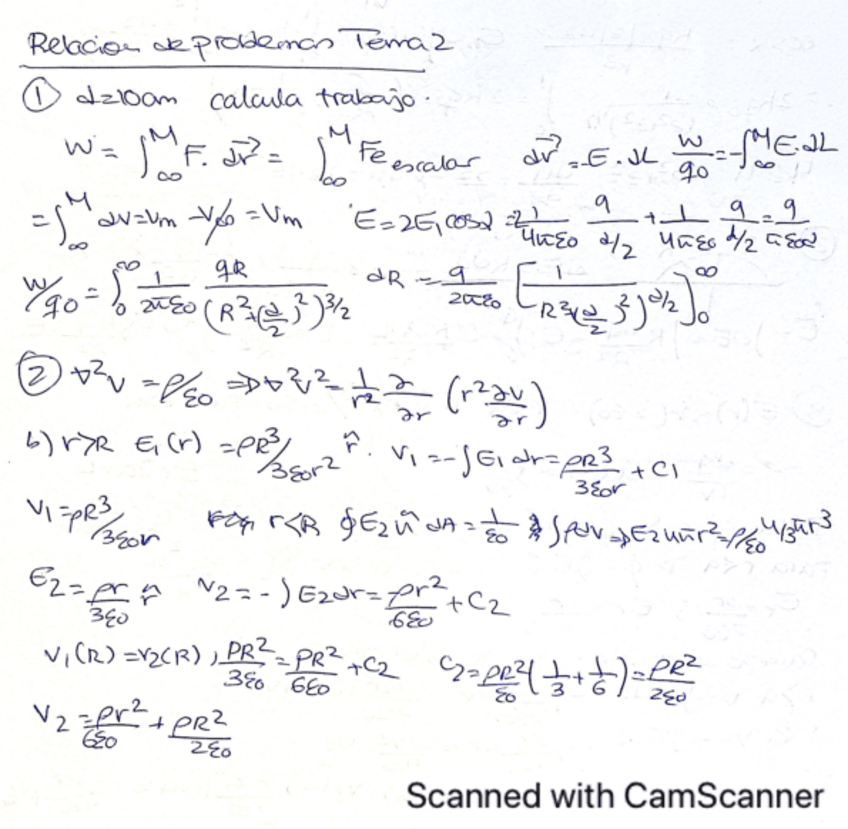 Relacion de problemas Tema 2
① d=10cm calcula trabajo.
W = ∫_∞^M F. dr⃗ = ∫_∞^M Fe escalar dv⃗ = -E.dL W/q0 = -∫_∞^M E.dL
= ∫_∞^M dv = Vm - V∞ = Vm E = 2E₁ cosα = 1/4πε0 q/d/2 + 1/4πε0 q/d/2 = q/πε0d
W/q0 = ∫_0^∞ 1/2πε0 qR/(R²+(d/2)²)^3/2 dR = q/2πε0 [1/R²+(d/2)²)^d/2]_0^∞
② ∇²v = ρ/ε0 => ∇²v² = 1/r² ∂/∂r (r² ∂v/∂r)
b) r>R E₁(r) = ρR³/3ε0r² r̂. V₁ = -∫E₁ dr = ρR³/3ε0r + C1
V₁ = ρR³/3ε0r r<R ∮E₂ n̂ dA = 1/ε0 ∫ρdv => E₂4πr² = ρ/ε0 4/3πr³
E₂ = ρr/3ε0 r̂ V₂ = -∫E₂dr = ρr²/6ε0 + C₂
V₁(R) = V₂(R), ρR²/3ε0 = ρR²/6ε0 + C₂ C₂ = ρR²/ε0 (1/3 + 1/6) = ρR²/2ε0
V₂ = ρr²/6ε0 + ρR²/2ε0
Scanned with CamScanner